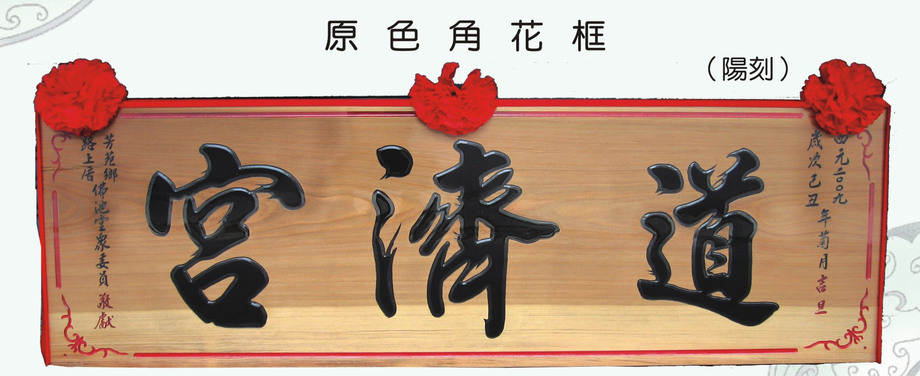 原色角花框
（陽刻）
道濟宮
西元二００九年菊月吉旦
歲次己丑
芳苑鄉佛池堂眾委員敬獻
路上厝